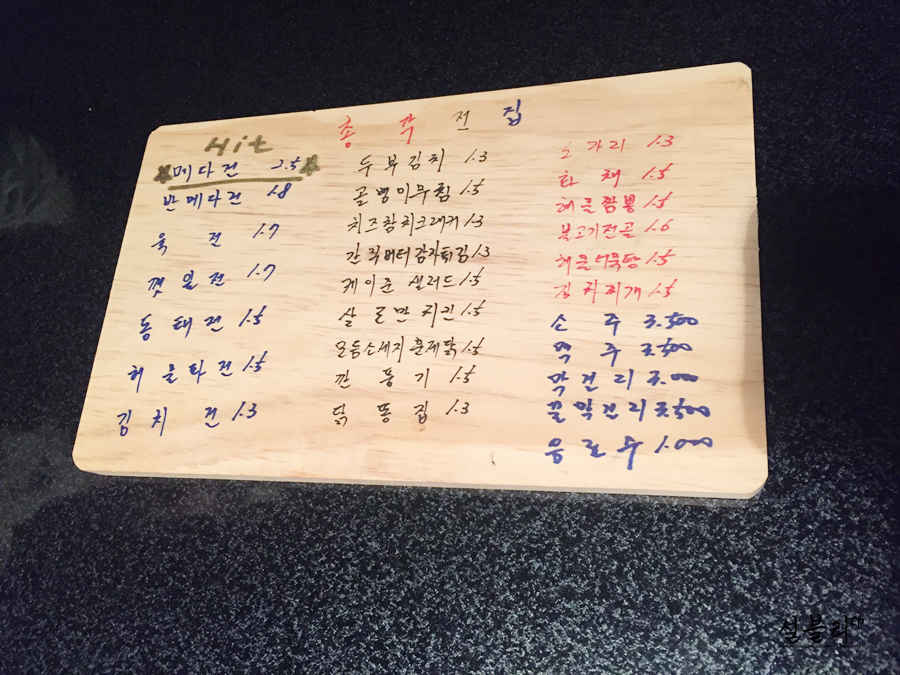 총각전집
Hit
메다전 2.5
반메다전 1.8
육전 1.7
깻잎전 1.7
동태전 1.5
해물파전 1.5
김치전 1.3
두부김치 1.3
골뱅이무침 1.5
치즈참치크래커 1.3
갈릭버터감자튀김 1.3
케이준샐러드 1.5
살로만치킨 1.5
모듬소세지훈제닭 1.5
깐풍기 1.5
닭똥집 1.3
노가리 1.3
화채 1.5
해물짬뽕 1.5
불고기전골 1.6
해물어묵탕 1.5
김치찌개 1.5
소주 3.500
맥주 3.500
막걸리 3.000
꿀막걸리 3.500
음료수 1.000
설블리